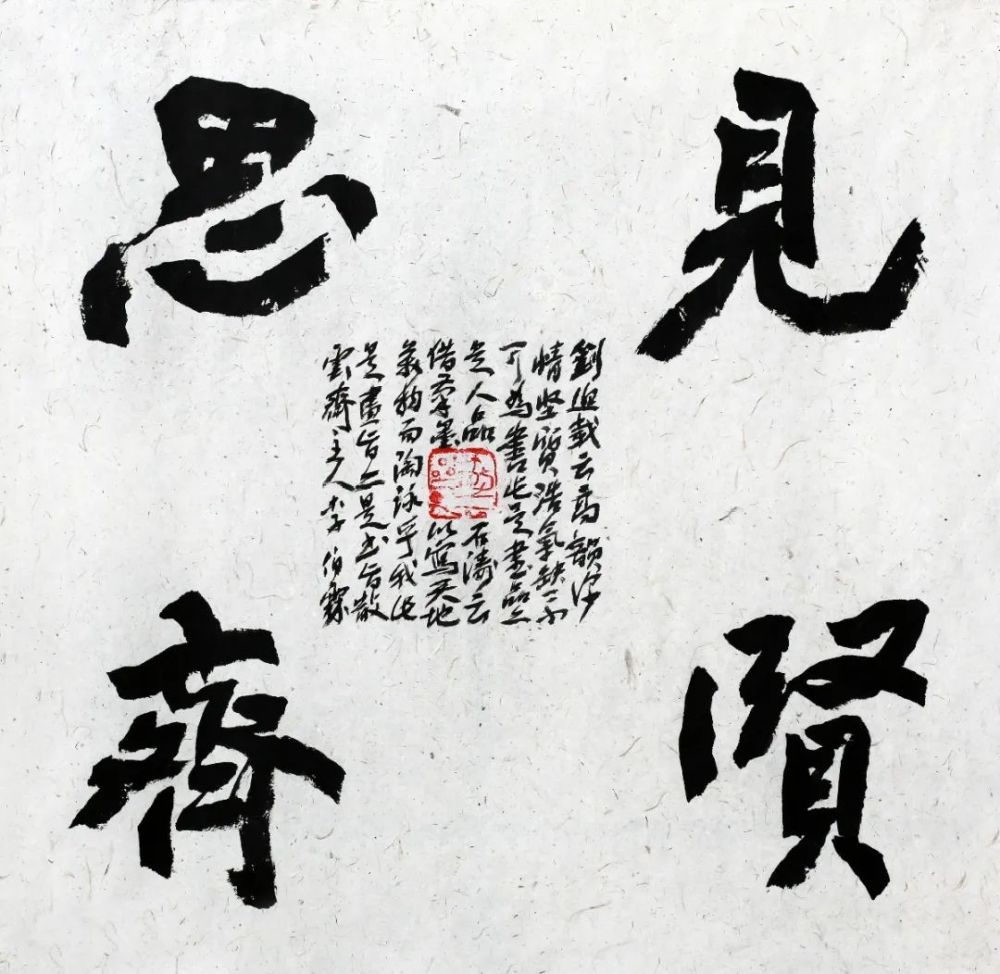 見賢
思齊
劉熙載云高韻深
情坚質浩氣缺一不
可為書此是書品亦
是人品石濤云
借筆墨以寫天地
萬物而陶泳乎我也
是畫旨亦是書旨散
雲齋主人李伯霖